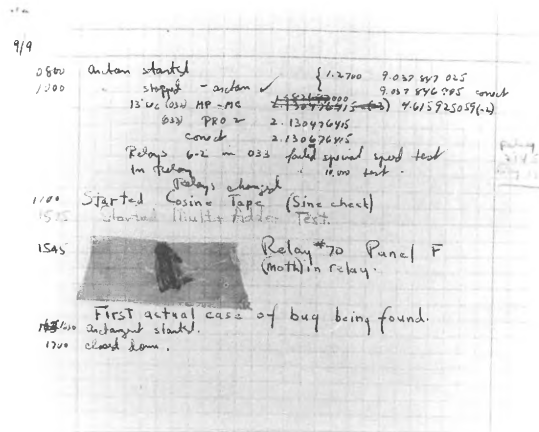 9/9
0800 antan started
1000 stopped - antan ✓ { 1.2700 9.037 847 025
9.037 846 995 correct
13"uc (032) MP - MC 4.615925059(-2)
(033) PRO 2 2.130476415
correct 2.130676415
Relays 6-2 in 033 failed special speed test
In Relay 10,000 test.
Relays changed
1100 Started Cosine Tape (Sine check)
1525 Started Mult + Adder Test.
1545 Relay #70 Panel F
(moth) in relay.
First actual case of bug being found.
1630 antangent started.
1700 closed down.